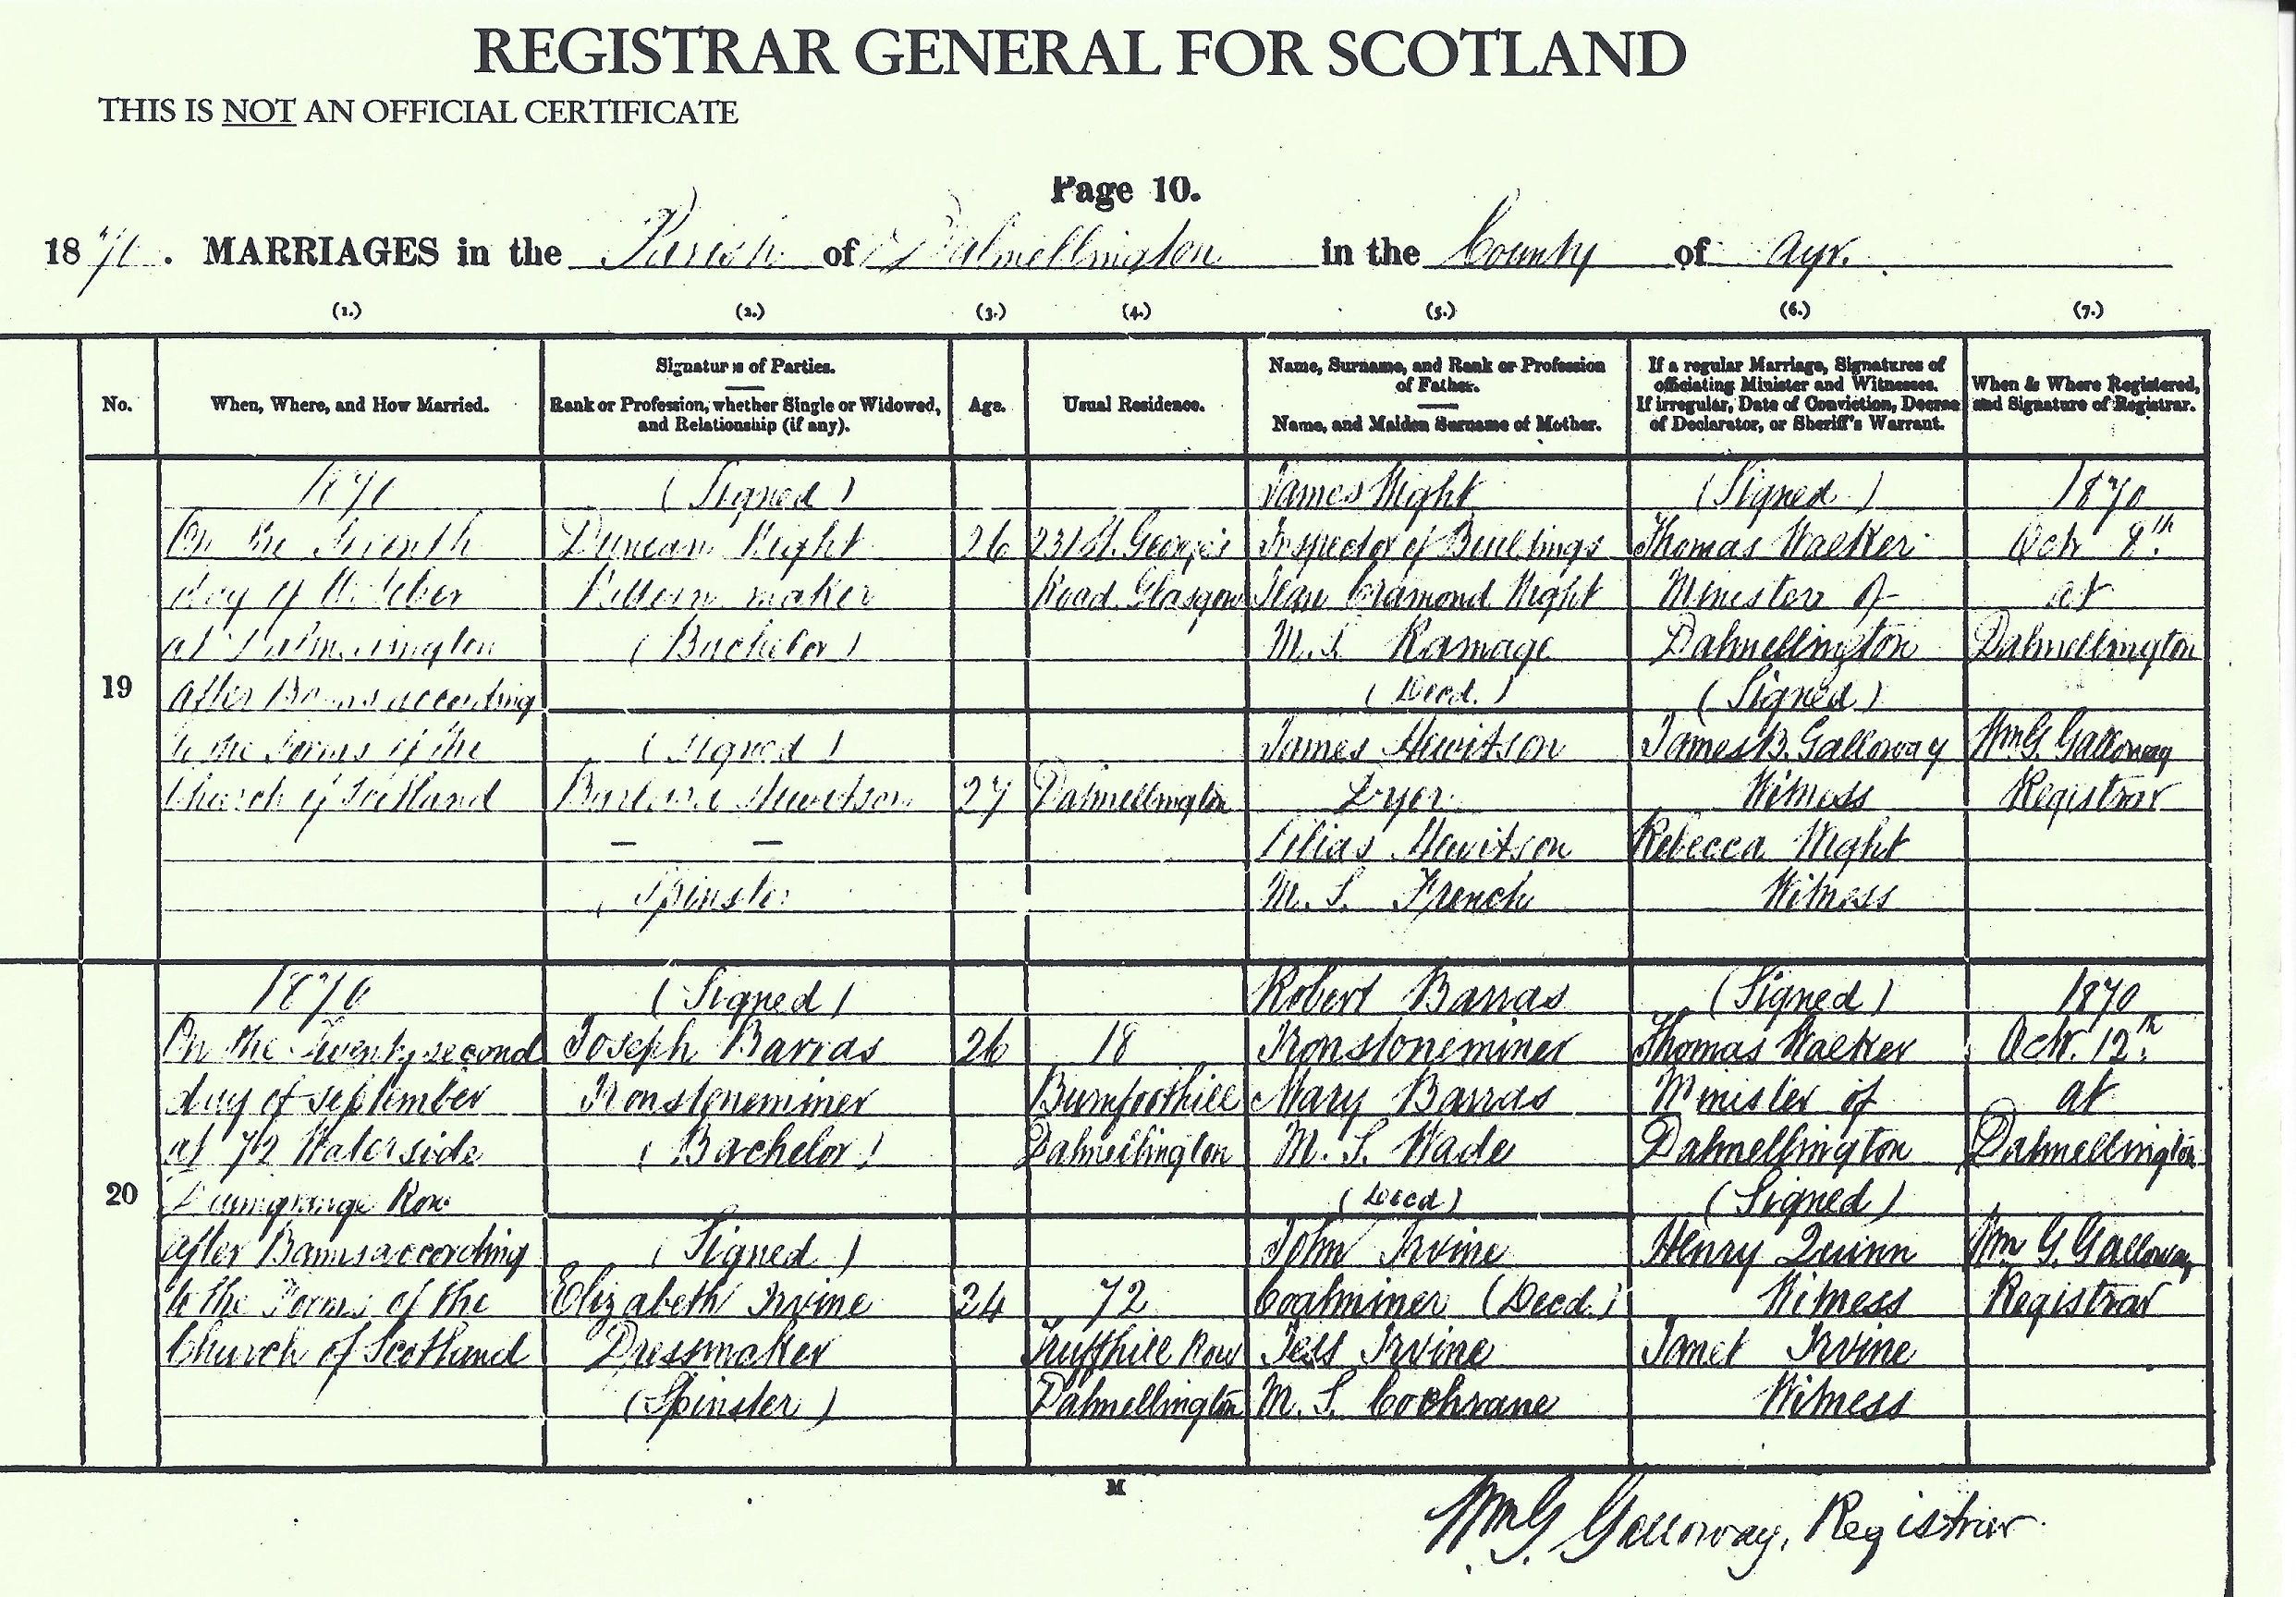 REGISTRAR GENERAL FOR SCOTLAND
THIS IS NOT AN OFFICIAL CERTIFICATE
Page 10.
1870. MARRIAGES in the Parish of Dalmellington in the County of Ayr.
(1.) (2.) (3.) (4.) (5.) (6.) (7.)
No.
When, Where, and How Married.
Signatures of Parties.
Rank or Profession, whether Single or Widowed,
and Relationship (if any).
Age.
Usual Residence.
Name, Surname, and Rank or Profession
of Father.
Name, and Maiden Surname of Mother.
If a regular Marriage, Signatures of
officiating Minister and Witnesses.
If irregular, Date of Conviction, Decree
of Declarator, or Sheriff's Warrant.
When & Where Registered,
and Signature of Registrar.
19
1870
On the Seventh
day of October
at Dalmellington
after Banns according
to the Forms of the
Church of Scotland
(Signed)
Duncan Wight
Pattern maker
(Bachelor)
(Signed)
Barbara Hewitson
— —
Spinster
26
27
231 St. George's
Road Glasgow
Dalmellington
James Wight
Inspector of Buildings
Jean Cramond Wight
M.S. Ramage
(Decd.)
James Hewitson
Dyer
Lilias Hewitson
M.S. French
(Signed)
Thomas Walker
Minister of
Dalmellington
(Signed)
James B. Galloway
Witness
Rebecca Wight
Witness
1870
Octr 8th.
at
Dalmellington
Wm G. Galloway
Registrar
20
1870
On the Twenty second
day of September
at 72 Waterside
Row
after Banns according
to the Forms of the
Church of Scotland
(Signed)
Joseph Barras
Ironstoneminer
(Bachelor)
(Signed)
Elizabeth Irvine
Dressmaker
(Spinster)
26
24
18
Burnfoothill
Dalmellington
72
Truffhill Row
Dalmellington
Robert Barras
Ironstoneminer
Mary Barras
M.S. Wade
(Decd)
John Irvine
Coalminer (Decd.)
Jess Irvine
M.S. Cochrane
(Signed)
Thomas Walker
Minister of
Dalmellington
(Signed)
Henry Quinn
Witness
Janet Irvine
Witness
1870
Octr. 12th.
at
Dalmellington
Wm G. Galloway
Registrar
M
Wm G. Galloway, Registrar.